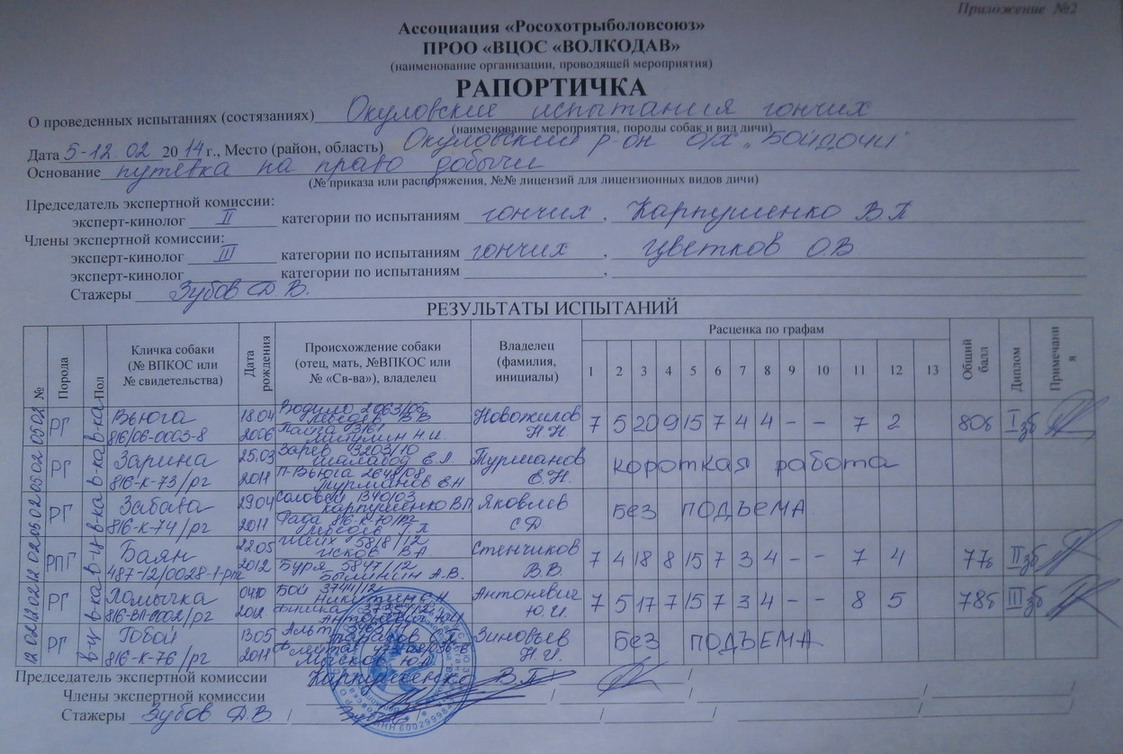 Приложение №2
Ассоциация «Росохотрыболовсоюз»
ПРОО «ВЦОС «ВОЛКОДАВ»
(наименование организации, проводящей мероприятия)
РАПОРТИЧКА
О проведенных испытаниях (состязаниях) Окуловские испытания гончих
(наименование мероприятия, породы собак и вид дичи)
Дата 5-12.02 2014 г., Место (район, область) Окуловский р-он о/х "Бойдочи"
Основание путевка на право добычи
(№ приказа или распоряжения, №№ лицензий для лицензионных видов дичи)
Председатель экспертной комиссии:
эксперт-кинолог II категории по испытаниям гончих, Карпушенко В П
Члены экспертной комиссии:
эксперт-кинолог III категории по испытаниям гончих, Цветков О.В
эксперт-кинолог категории по испытаниям ,
Стажеры Зубов Д.В.
РЕЗУЛЬТАТЫ ИСПЫТАНИЙ
№ Порода Пол Кличка собаки (№ ВПКОС или № свидетельства) Дата рождения Происхождение собаки (отец, мать, №ВПКОС или № «Св-ва»), владелец Владелец (фамилия, инициалы) Расценка по графам Общий балл Диплом Примечания
1 2 3 4 5 6 7 8 9 10 11 12 13
05 02 РГ в-ка Вьюга 816/06-0003-8 18.04 2006 2063/05 Новожилов Н.Н. 7 5 20 9 15 7 4 4 – – 7 2 80б I зб
05 02 РГ в-ка Зарина 816-К-73/рг 25.03 2011 Зарев 3203/10 Шалавов Е.Л П-Вьюга 2648/08 Турманов Е.Н Турманов Е.Н. короткая работа
05 02 РГ в-ка Забава 816-К-74/рг 29.04 2011 Соловей 1340/03 Карпушенко ВП Яковлев С Д Без подъема
12 02 РПГ в-ц Баян 487-12/0028-1-рпг 22.05 2012 5818/12 Исков В А Буря 5847/12 Былинин А.В. Стенчиков В.В. 7 4 18 8 15 7 3 4 – – 7 4 77б II зб
12 02 РГ в-ка Хомычка 816-ВП-0002/рг 04.10 2012 Бой 37411/12 Антоневич Ю.И. 7 5 17 7 15 7 3 4 – – 8 5 78б III зб
12 02 РГ в-ц Гобой 816-К-76/рг 13.05 2011 Мысков Ю.Л Зиновьев Н.И. Без подъема
Председатель экспертной комиссии Карпушенко В.П
Члены экспертной комиссии
Стажеры Зубов Д.В.